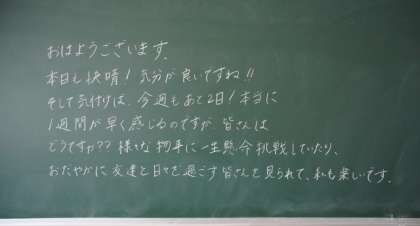 おはようございます。
本日も快晴！気分が良いですね!!
そして気付けば、今週もあと2日！本当に
1週間が早く感じるのですが、皆さんは
どうですか??様々な物事に一生懸命挑戦していたり、
おだやかに友達と日々を過ごす皆さんを見られて、私も楽しいです。